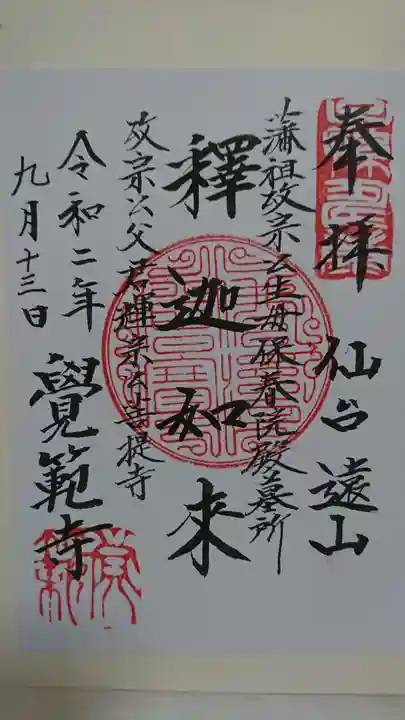 奉拝 仙台 遠山
藩祖政宗公生母保春院殿墓所
釋迦如来
政宗公父君輝宗公菩提寺
令和二年
九月十三日
覺範寺